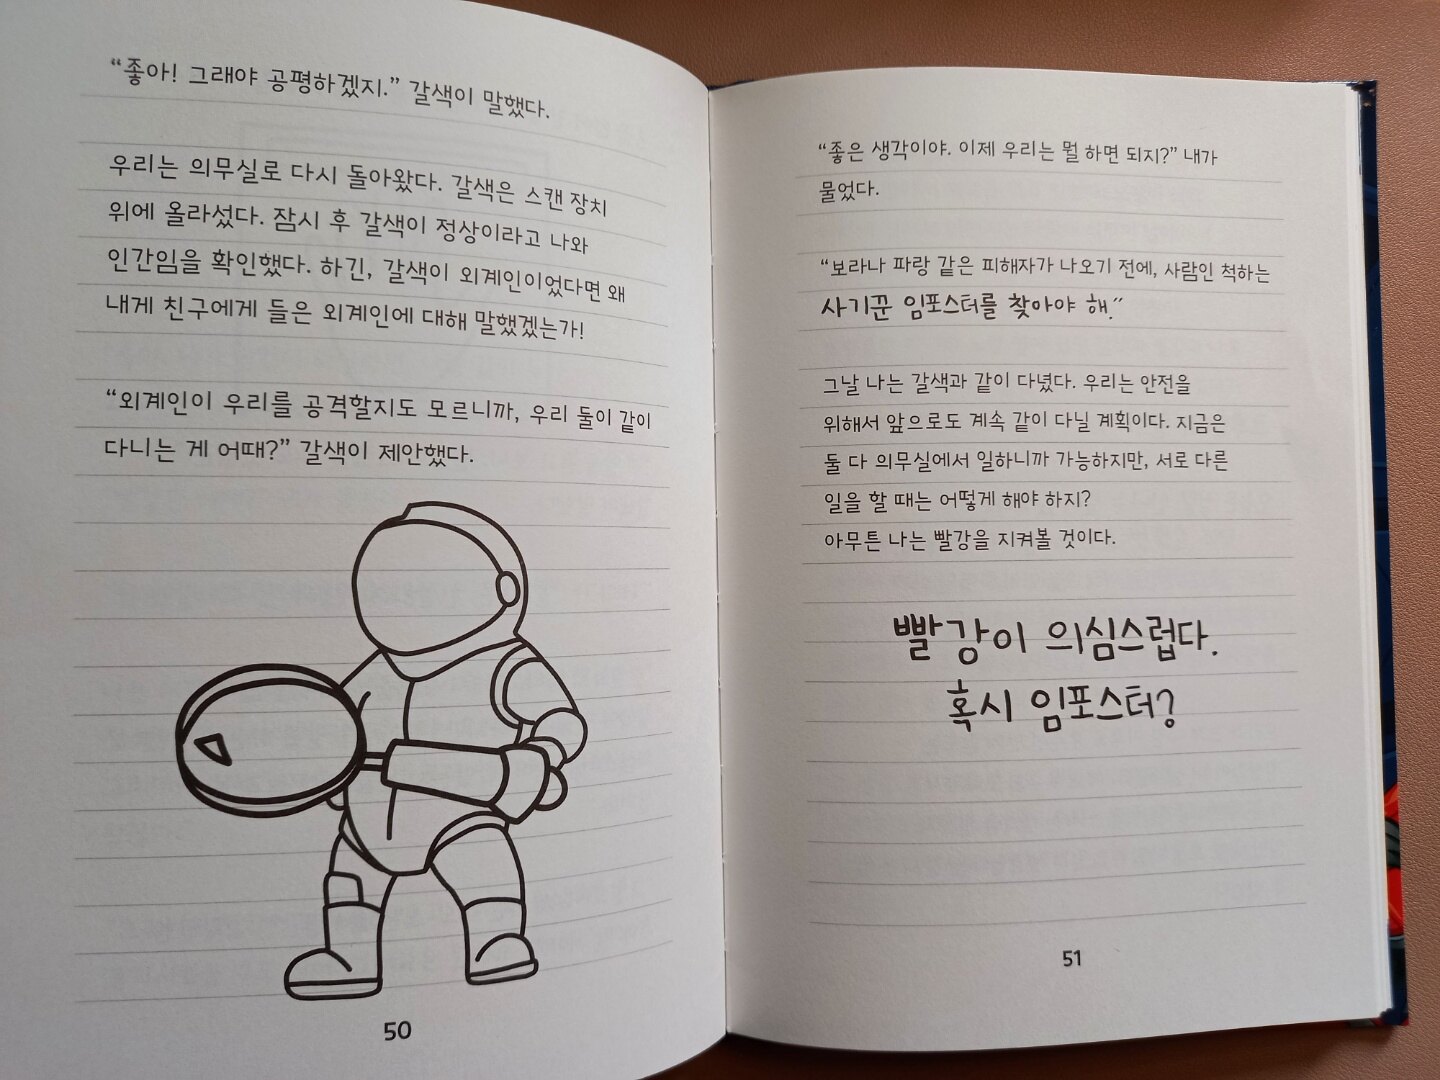 “좋아! 그래야 공평하겠지.” 갈색이 말했다.
우리는 의무실로 다시 돌아왔다. 갈색은 스캔 장치
위에 올라섰다. 잠시 후 갈색이 정상이라고 나와
인간임을 확인했다. 하긴, 갈색이 외계인이었다면 왜
내게 친구에게 들은 외계인에 대해 말했겠는가!
“외계인이 우리를 공격할지도 모르니까, 우리 둘이 같이
다니는 게 어때?” 갈색이 제안했다.
50
“좋은 생각이야. 이제 우리는 뭘 하면 되지?” 내가
물었다.
“보라나 파랑 같은 피해자가 나오기 전에, 사람인 척하는
사기꾼 임포스터를 찾아야 해.”
그날 나는 갈색과 같이 다녔다. 우리는 안전을
위해서 앞으로도 계속 같이 다닐 계획이다. 지금은
둘 다 의무실에서 일하니까 가능하지만, 서로 다른
일을 할 때는 어떻게 해야 하지?
아무튼 나는 빨강을 지켜볼 것이다.
빨강이 의심스럽다.
혹시 임포스터?
51